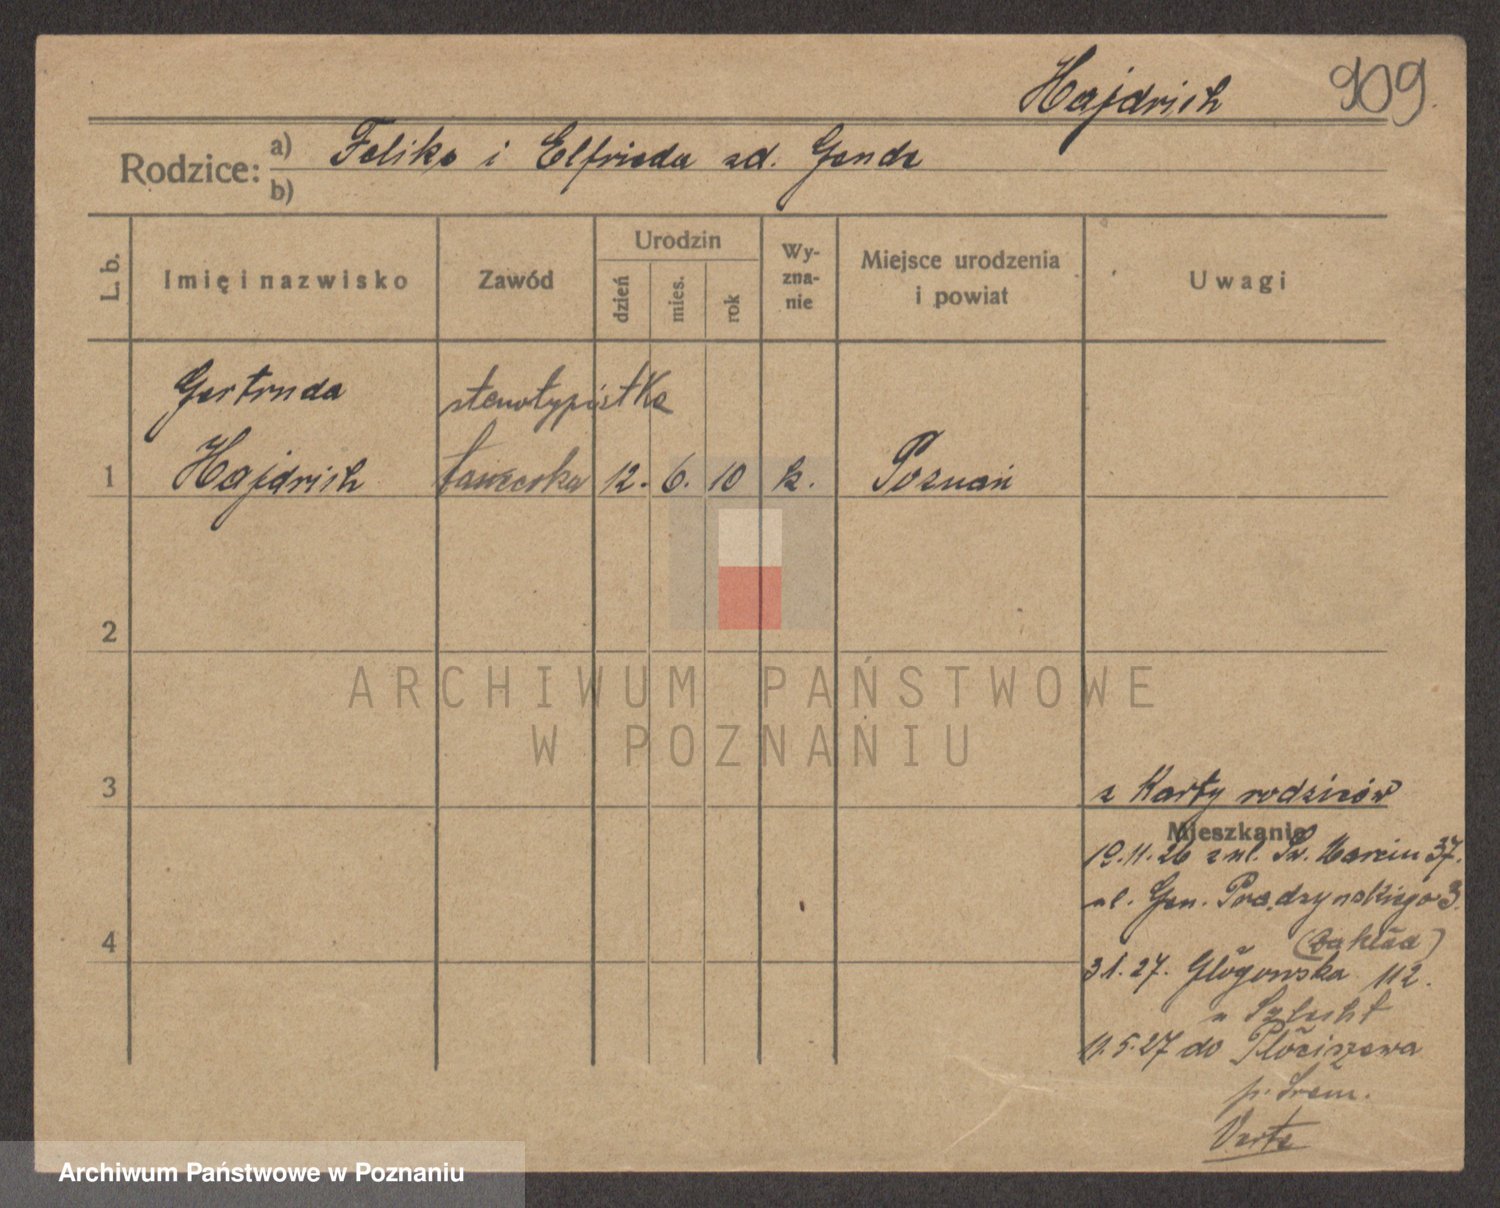 Hajdrich 909.
Rodzice: a) Feliks i Elfrieda zd. Gende
b)
L. b. Imię i nazwisko Zawód Urodzin dzień mies. rok Wy-zna-nie Miejsce urodzenia i powiat Uwagi
Gertruda stenotypistka
1 Hajdrich 12. 6. 10 k. Poznań
2
ARCHIWUM PAŃSTWOWE
W POZNANIU
3 z Karty rodziców
Mieszkanie
19.11.26 z ul. Św. Marcin 37.
ul. Gen. Prądzyńskiego 3.
4 (zakład)
31.27. Głogowska 112.
u Szlecht
11.5.27 do Płociszewa
p. Śrem.
Verte
Archiwum Państwowe w Poznaniu